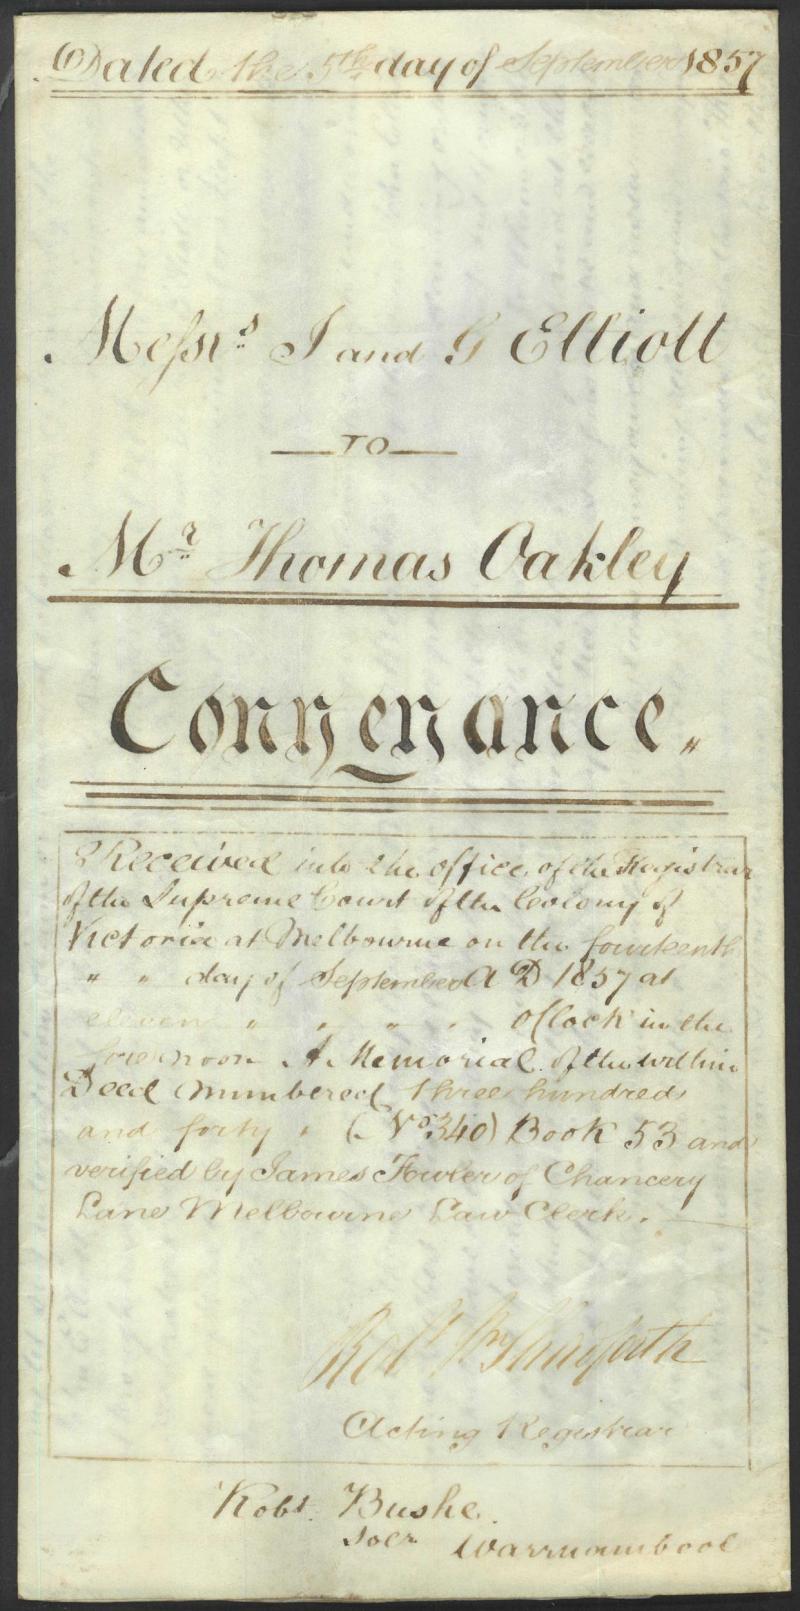 Dated the 5th day of September 1857
Messrs J and G Elliott
TO
Mr Thomas Oakley
Conveyance
Received into the office of the Registrar
of the Supreme Court of the Colony of
Victoria at Melbourne on the fourteenth
" " day of September A D 1857 at
eleven " " " " oClock in the
forenoon A Memorial of the within
Deed numbered three hundred
and forty " (No 340) Book 53 and
verified by James Fowler of Chancery
Lane Melbourne Law Clerk.
Robt Wm
Acting Registrar
Robt. Bushe.
Solr Warrnambool